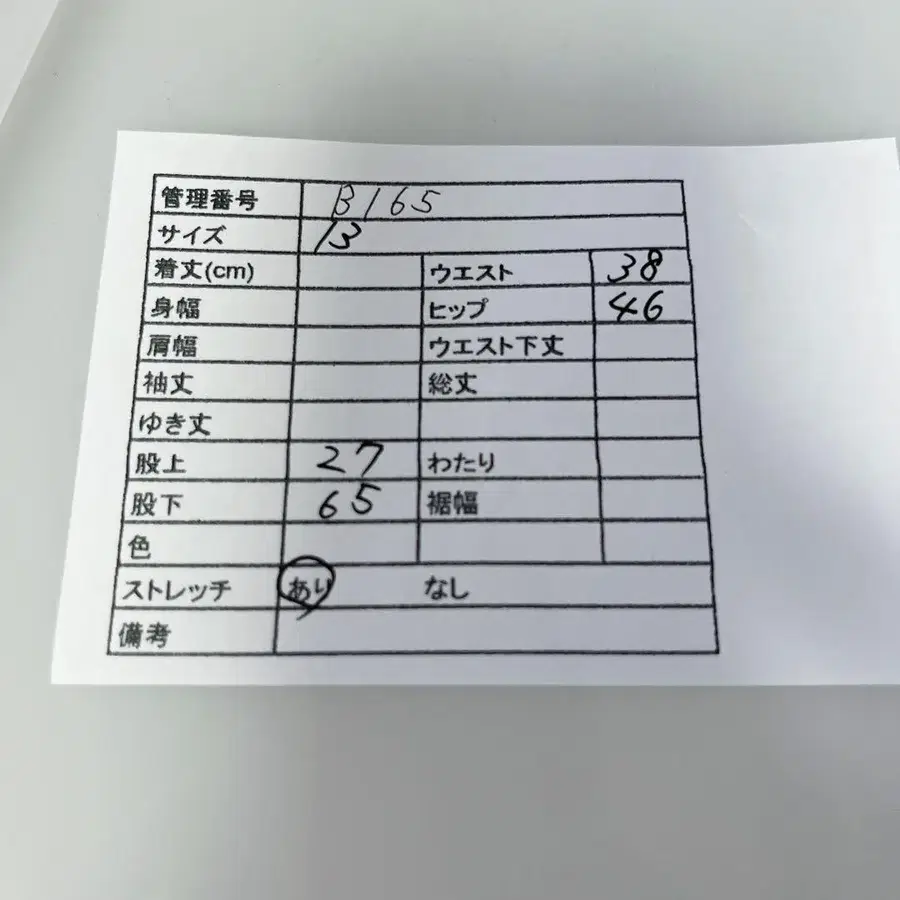 管理番号 B165
サイズ 13
着丈(cm) ウエスト 38
身幅 ヒップ 46
肩幅 ウエスト下丈
袖丈 総丈
ゆき丈
股上 27 わたり
股下 65 裾幅
色
ストレッチ あり なし
備考